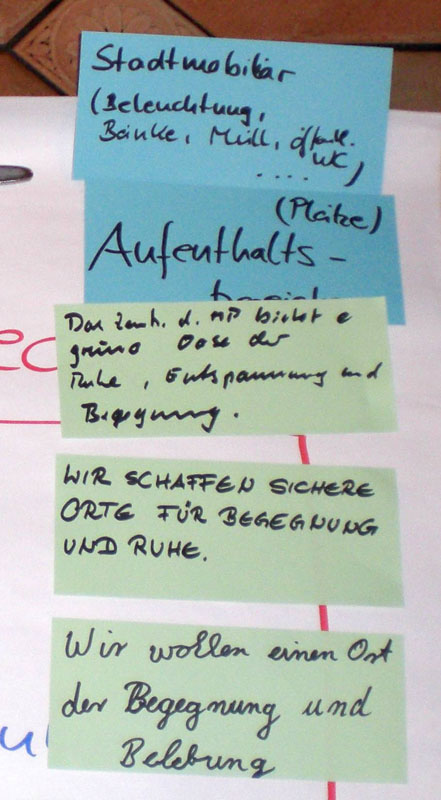 Stadtmobiliar
(Beleuchtung,
Bänke, Müll, öffentl.
WC,
....)
(Plätze)
Aufenthalts-
Das Zentr. d. MP bietet e
grüne Oase der
Ruhe, Entspannung und
Begegnung.
WIR SCHAFFEN SICHERE
ORTE FÜR BEGEGNUNG
UND RUHE.
Wir wollen einen Ort
der Begegnung und
Belebung